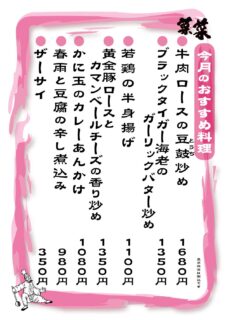 菜菜
今月のおすすめ料理
牛肉ロースの豆鼓炒め
とうち
1680円
ブラックタイガー海老の
ガーリックバター炒め
1350円
若鶏の半身揚げ
1100円
黄金豚ロースと
カマンベールチーズの香り炒め
1350円
かに玉のカレーあんかけ
1080円
春雨と豆腐の辛し煮込み
980円
ザーサイ
350円